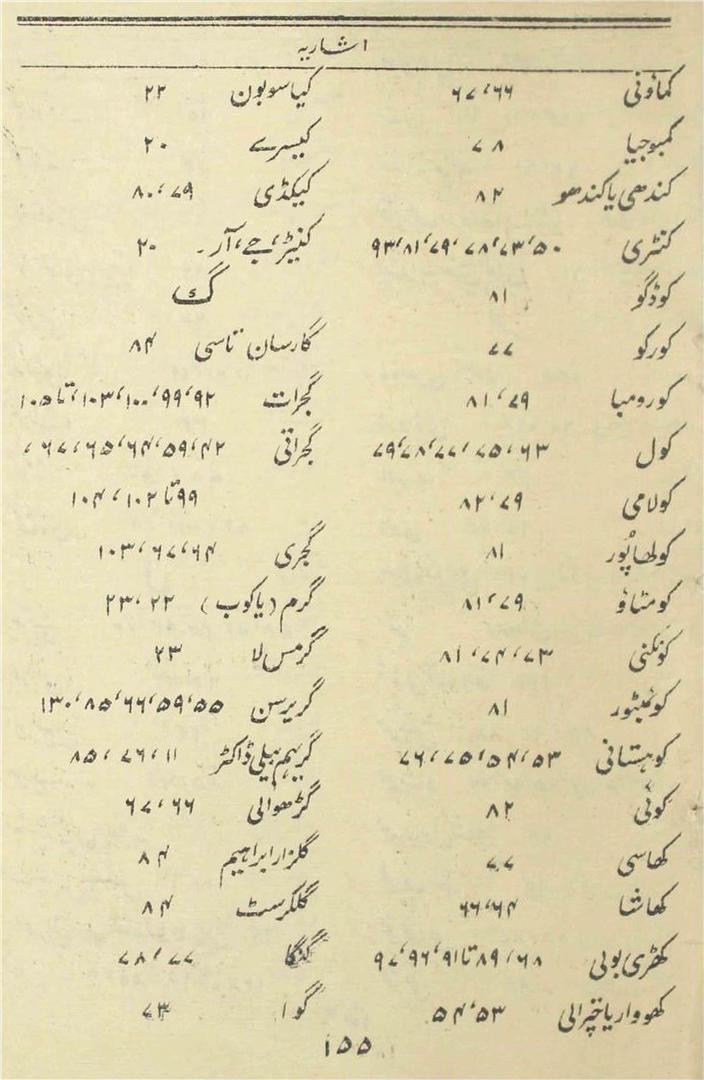 اشاریہ
کماؤنی ۶۶، ۶۷
کمبوجیا ۷۸
کندھی یا کندھو ۸۲
کنٹری ۵۰، ۷۳، ۷۸، ۷۹، ۸۱، ۹۳
کوڈگو ۸۱
کورکو ۷۷
کورومبا ۷۹، ۸۱
کول ۶۳، ۷۵، ۷۷، ۷۸، ۷۹
کولامی ۷۹، ۸۲
کولھاپُور ۸۱
کومٹاؤ ۷۹، ۸۱
کونکنی ۷۳، ۷۴، ۸۱
کوئمبٹور ۸۱
کوہستانی ۵۳، ۵۴، ۷۵، ۷۶
کوئی ۸۲
کھاسی ۷۷
کھاشا ۶۴، ۶۶
کھڑی بولی ۶۸، ۸۹ تا ۹۱، ۹۶، ۹۷
کھووار یا چترالی ۵۳، ۵۴
کیاسوبون ۲۲
کیسرے ۲۰
کیکڈی ۷۹، ۸۰
کنیڑ، جے، آر۔ ۲۰
گ
گارسان تاسی ۸۴
گجرات ۹۲، ۹۹، ۱۰۰، ۱۰۳، تا ۱۰۵
گجراتی ۴۲، ۵۹، ۶۴، ۶۵، ۶۷،
۹۹ تا ۱۰۲، ۱۰۴
گجری ۶۴، ۶۷، ۱۰۳
گرم (یا کوب) ۲۲، ۲۳
گرمس لا ۲۳
گریرسن ۵۵، ۵۹، ۶۶، ۸۵، ۱۳۰
گریہم بیلی ڈاکٹر ۱۱، ۷۶، ۸۵
گڑھوالی ۶۶، ۶۷
گلزار ابراہیم ۸۴
گلکرسٹ ۸۴
گنگا ۷۷، ۷۸
گوا ۷۳
۱۵۵